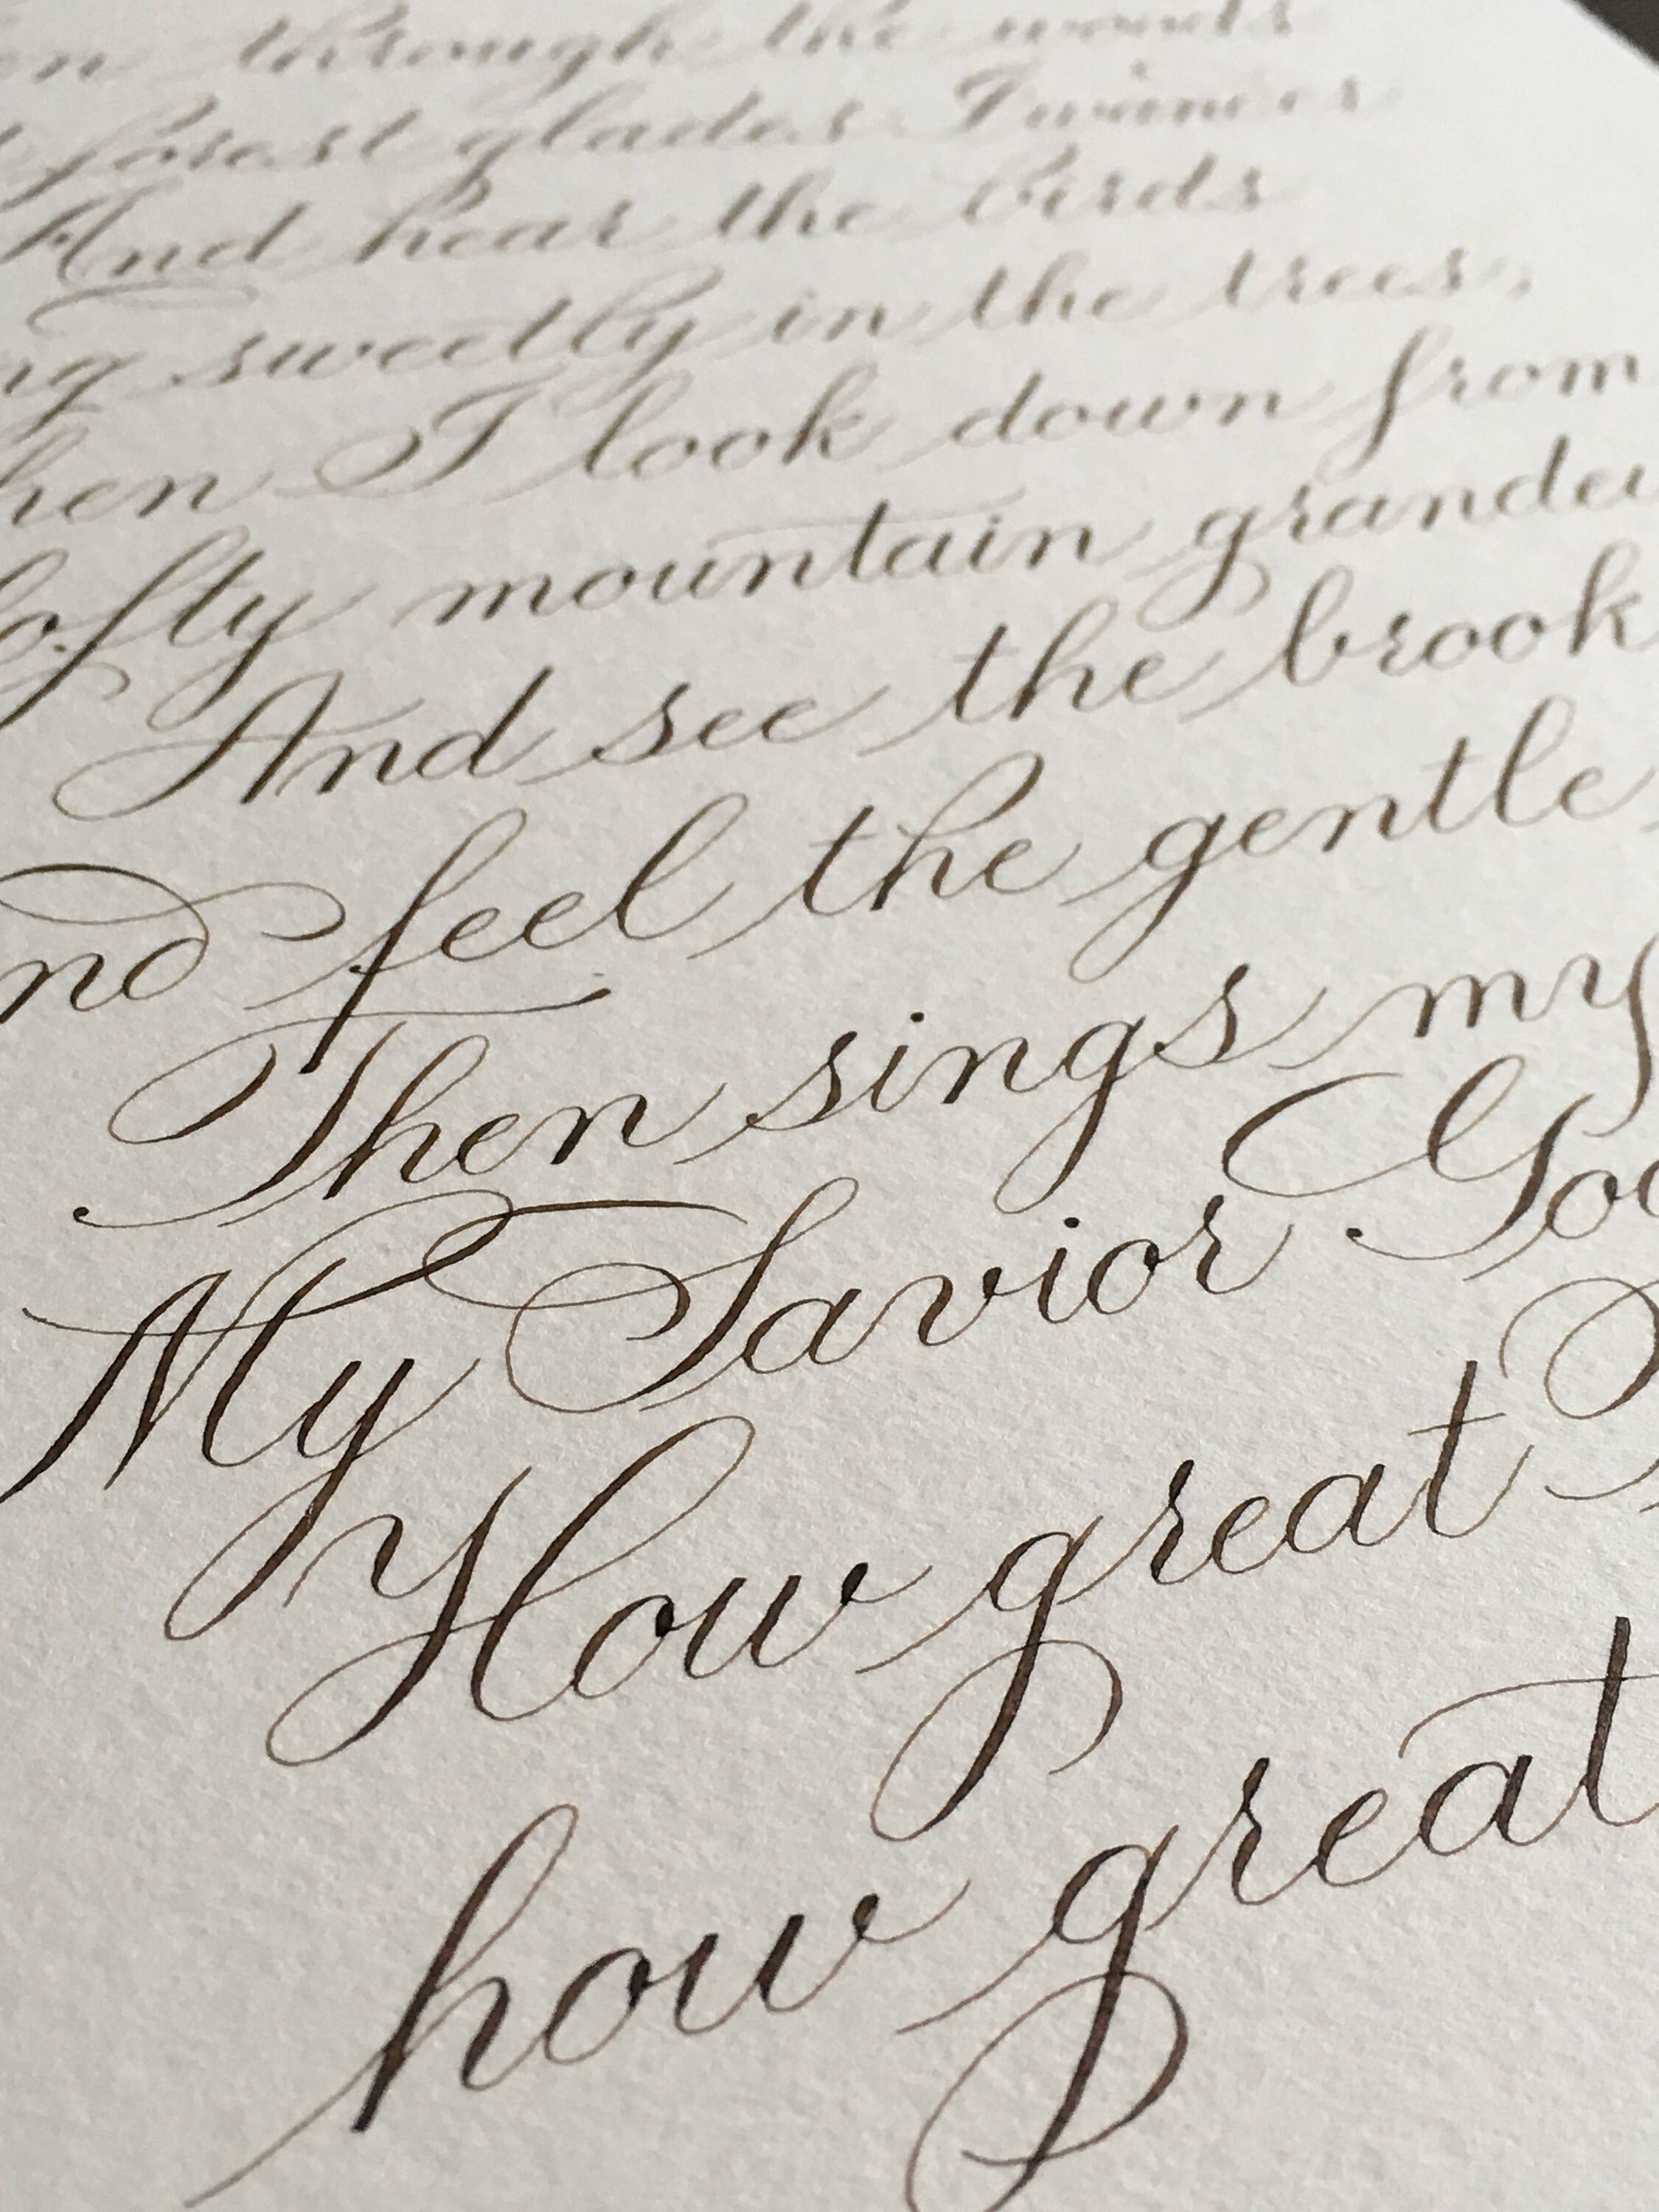 en through the woods
forest glades I wander
And hear the birds
ng sweetly in the trees,
hen I look down from
lofty mountain grandeu
And see the brook
nd feel the gentle
Then sings my
My Savior God
How great
how great